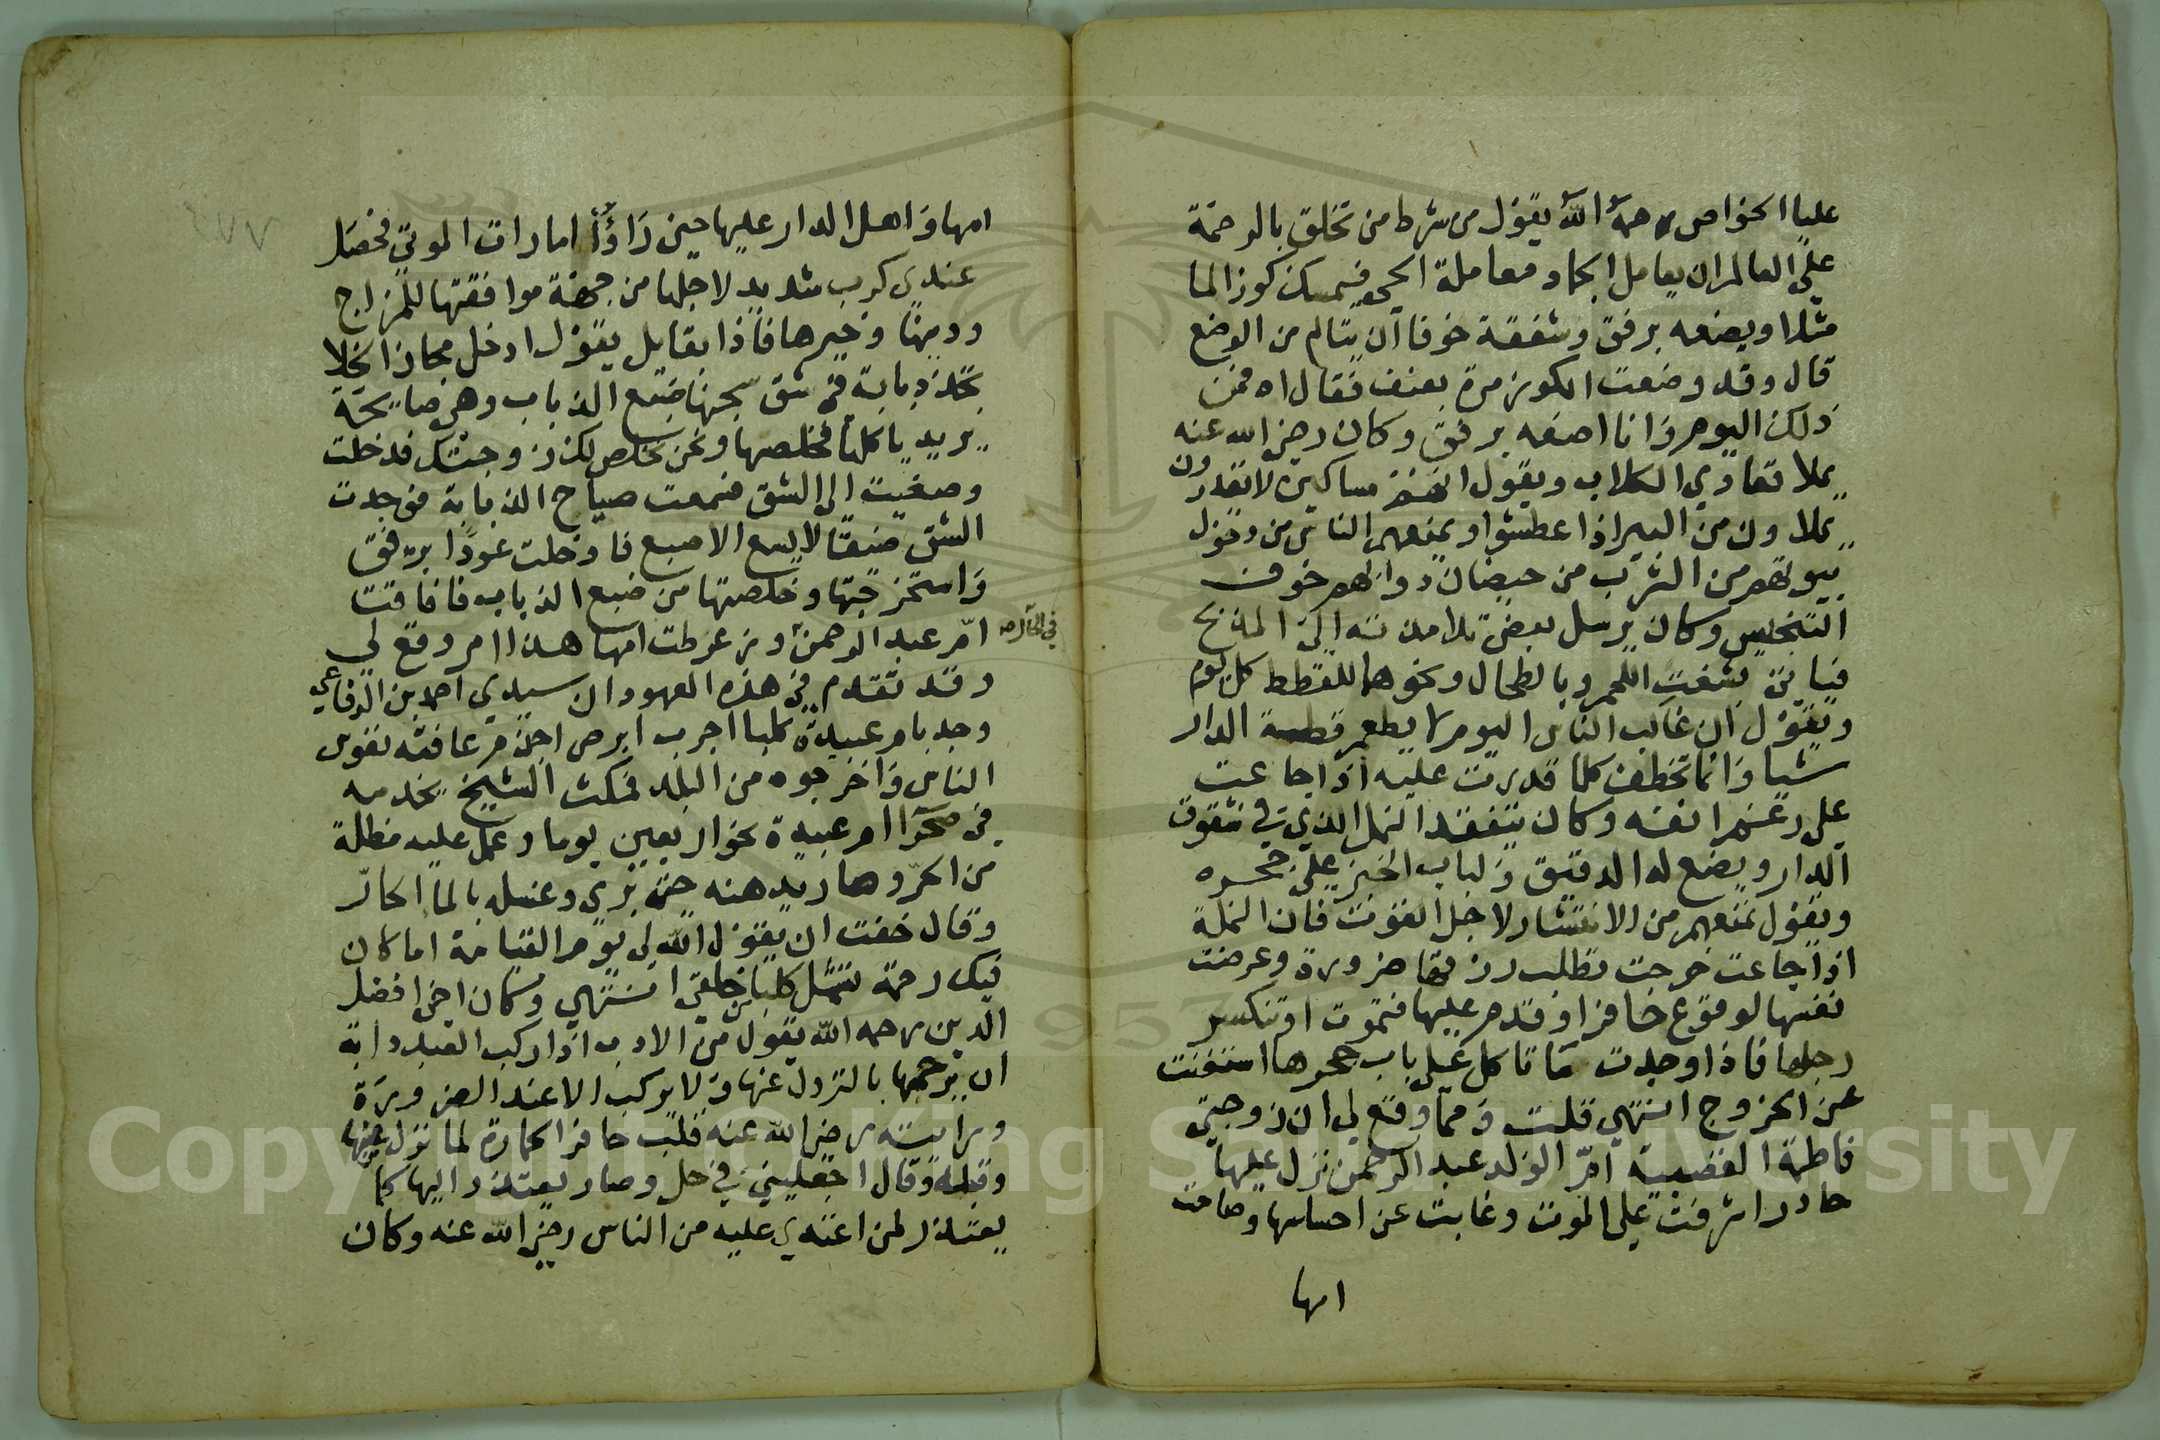 عليا الخواص رحمه الله يقول من شرط من تخلق بالرحمة
على العالم ان يعامل الجماد معاملة الحي فيمسك كوز الما
مثلا ويضعه برفق وشفقة خوفا ان يتالم من الوضع
قال وقد وضعت الكوز مرة بعنف فقال اه فمن
ذلك اليوم وانا اضعه برفق وكان رضي الله عنه
يملا تعاوي الكلاب ويقول انهم مساكين لا يقدرون
يملاون من البير اذا عطشوا ويمنعهم الناس من دخول
بيوتهم من الشرب من حيضان دوابهم خوف
التنجيس وكان يرسل بعض تلامذته الى المذبح
فياتي بشغت اللحم وبالطحال ونحوهما للقطط كل يوم
ويقول ان غالب الناس اليوم لا يطعم قطة الدار
شيا وانما تخطف كلما قدرت عليه اذا جاعت
على رغم انفه وكان يتفقد النمل الذي في شقوق
الدار ويضع له الدقيق ولباب الخبز على جحره
ويقول نمنعهم من الانتشار لاجل القوت فان النملة
اذا جاعت خرجت تطلب رزقها ضرورة وعرضت
نفسها لوقوع حافر او قدم عليها فتموت او تنكسر
رجلها فاذا وجدت ما تاكل على باب جحرها استغنت
عن الخروج انتهي قلت ومما وقع لي ان زوجتي
فاطمة القضبية ام الولد عبد الرحمن نزل عليها
حادر اشرفت على الموت وغابت عن احساسها وصاحت
امها
امها واهل الدار عليها حين راوا امارات الموت فحصل
عندي كرب شديد لاجلها من جهة موافقتها للمزاج
ودينها وخيرها فاذا بقايل يقول ادخل مجاز الخلا
تجد ذبابة في شق سجنها ضبع الذباب وهي صايحة
يريد ياكلها فخلصها ونحن نخلص لك زوجتك فدخلت
وصغيت الى الشق فسمعت صياح الذبابة فوجدت
الشق ضيقا لا يسع الاصبع فادخلت عودا برفق
واستخرجتها وخلصتها من ضبع الذباب فافاقت
في الحال صح
ام عبد الرحمن وزغرطت امها هذا امر وقع لي
وقد تقدم في هذه العهود ان سيدي احمد بن الرفاعي
وجد بام عبيدة كلبا اجرب ابرص اجذم عافته نفوس
الناس واخرجوه من البلد فمكث الشيخ يخدمه
في صحرا ام عبيدة نحو اربعين يوما وعمل عليه مظلة
من الحر وصار يدهنه حتى بري وغسله بالما الحار
وقال خفت ان يقول الله لي يوم القيامة اما كان
فيك رحمة تشمل كلبا من خلقي انتهي وكان اخي افضل
الدين رحمه الله يقول من الادب اذا ركب العبد دابة
ان يرحمها بالنزول عنها ولا يركب الا عند الضرورة
ورايته رضي الله عنه قلب حافر الحمارة لما نزل عنها
وقبله وقال اجعليني في حل وصار يعتذر اليها كما
يعتذر لمن اعتدي عليه من الناس رضي الله عنه وكان
Copyright © King Saud University